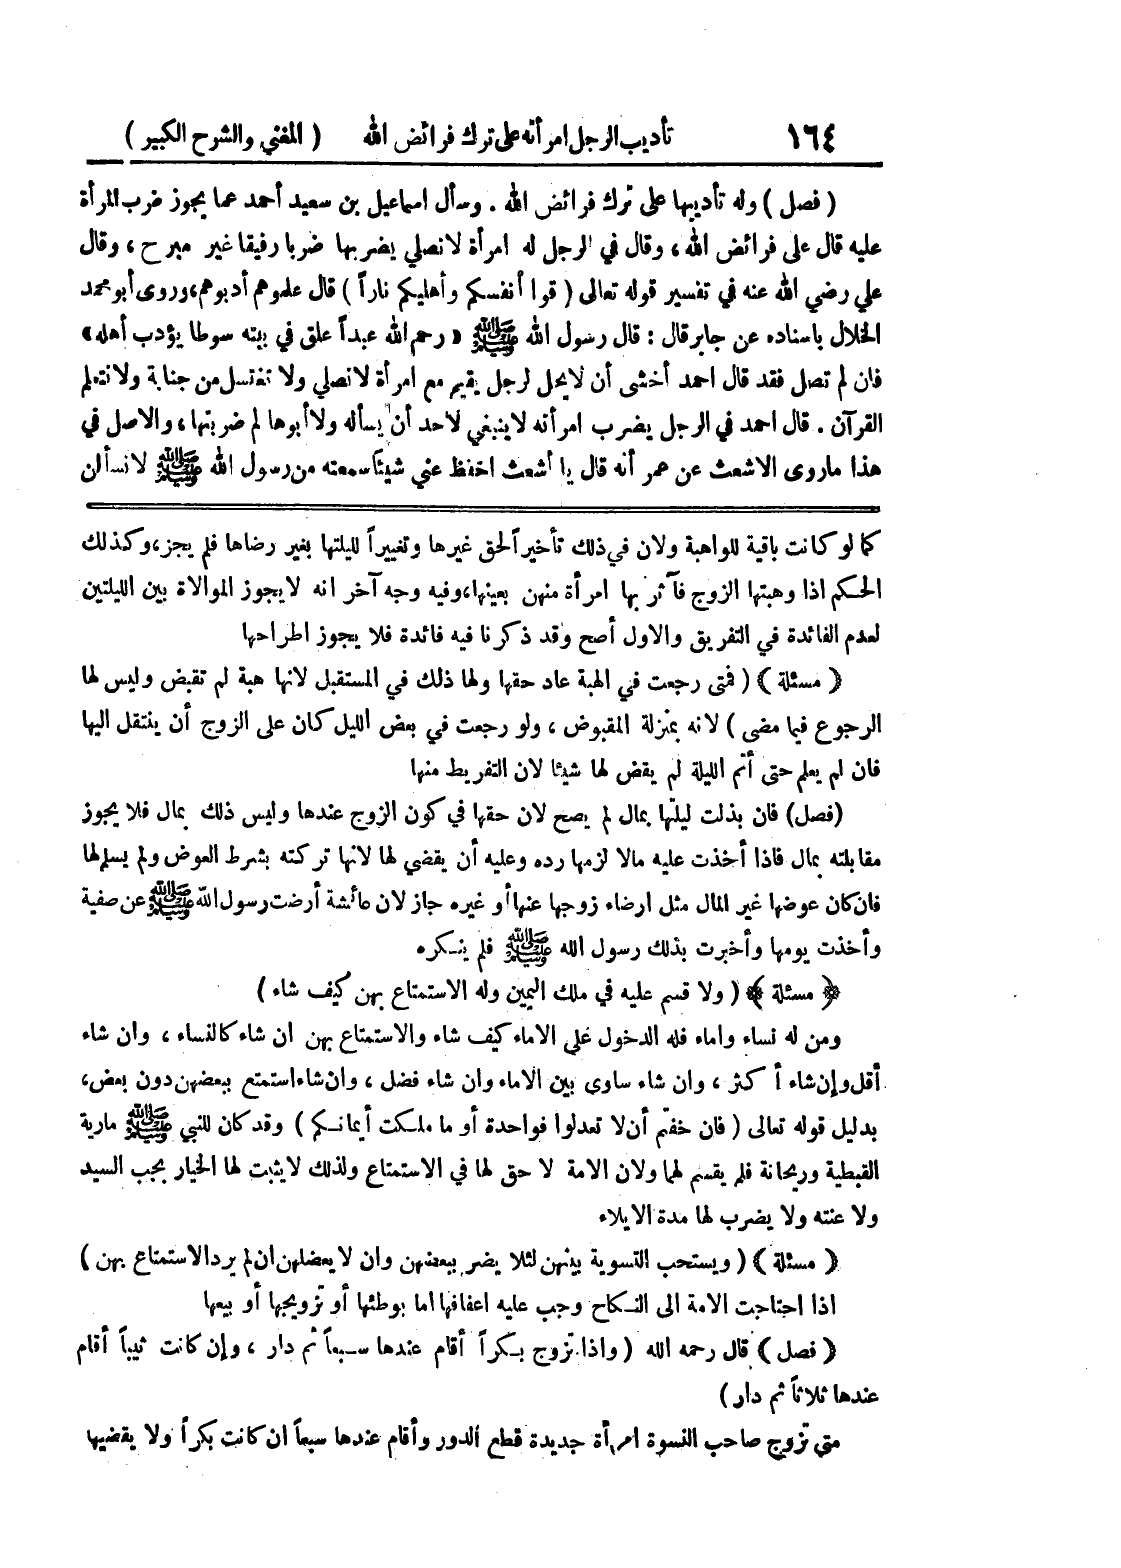 ١٦٤ تأديب الرجل امرأته على ترك فرائض الله ( المغني والشرح الكبير )
( فصل ) وله تأديبها على ترك فرائض الله . وسأل اسماعيل بن سعيد أحمد عما يجوز ضرب المرأة
عليه قال على فرائض الله ، وقال في الرجل له امرأة لا تصلي يضربها ضربا رفيقا غير مبرح ، وقال
علي رضي الله عنه في تفسير قوله تعالى ( قوا أنفسكم وأهليكم ناراً ) قال علموهم أدبوهم، وروى أبو محمد
الخلال باسناده عن جابر قال : قال رسول الله ﷺ « رحم الله عبداً علق في بيته سوطا يؤدب أهله »
فان لم تصل فقد قال احمد أخشى أن لا يحل لرجل يقيم مع امرأة لا تصلي ولا تغتسل من جنابة ولا تتعلم
القرآن . قال احمد في الرجل يضرب امرأته لا ينبغي لاحد أن يسأله ولا أبوها لم ضربتها ، والاصل في
هذا ما روى الاشعث عن عمر أنه قال يا أشعث احفظ عني شيئا سمعته من رسول الله ﷺ لا تسألن
كما لو كانت باقية للواهبة ولان في ذلك تأخيراً لحق غيرها وتغييراً لليلتها بغير رضاها فلم يجز، وكذلك
الحكم اذا وهبتها الزوج فآثر بها امرأة منهن بعينها، وفيه وجه آخر انه لا يجوز الموالاة بين الليلتين
لعدم الفائدة في التفريق والاول أصح وقد ذكرنا فيه فائدة فلا يجوز اطراحها
﴿ مسئلة ﴾ ( فمتى رجعت في الهبة عاد حقها ولها ذلك في المستقبل لانها هبة لم تقبض وليس لها
الرجوع فيما مضى ) لانه بمنزلة المقبوض ، ولو رجعت في بعض الليل كان على الزوج أن ينتقل اليها
فان لم يعلم حتى أتم الليلة لم يقض لها شيئا لان التفريط منها
(فصل) فان بذلت ليلتها بمال لم يصح لان حقها في كون الزوج عندها وليس ذلك بمال فلا يجوز
مقابلته بمال فاذا أخذت عليه مالا لزمها رده وعليه أن يقضي لها لانها تركته بشرط العوض ولم يسلم لها
فان كان عوضها غير المال مثل ارضاء زوجها عنها أو غيره جاز لان عائشة أرضت رسول الله ﷺ عن صفية
وأخذت يومها وأخبرت بذلك رسول الله ﷺ فلم ينكره
﴿ مسئلة ﴾ ( ولا قسم عليه في ملك اليمين وله الاستمتاع بهن كيف شاء )
ومن له نساء واماء فله الدخول على الاماء كيف شاء والاستمتاع بهن ان شاء كالنساء ، وان شاء
أقل وإن شاء أكثر ، وان شاء ساوى بين الاماء وان شاء فضل ، وان شاء استمتع ببعضهن دون بعض،
بدليل قوله تعالى ( فان خفتم أن لا تعدلوا فواحدة أو ما ملكت أيمانكم ) وقد كان للنبي ﷺ مارية
القبطية وريحانة فلم يقسم لهما ولان الامة لا حق لها في الاستمتاع ولذلك لا يثبت لها الخيار بجب السيد
ولا عنته ولا يضرب لها مدة الايلاء
﴿ مسئلة ﴾ ( ويستحب التسوية بينهن لئلا يضر ببعضهن وان لا يعضلهن ان لم يرد الاستمتاع بهن )
اذا احتاجت الامة الى النكاح وجب عليه اعفافها اما بوطئها أو تزويجها أو بيعها
﴿ فصل ﴾ قال رحمه الله ( واذا تزوج بكراً أقام عندها سبعاً ثم دار ، وإن كانت ثيباً أقام
عندها ثلاثاً ثم دار )
متى تزوج صاحب النسوة امرأة جديدة قطع الدور وأقام عندها سبعاً ان كانت بكراً ولا يقضيها